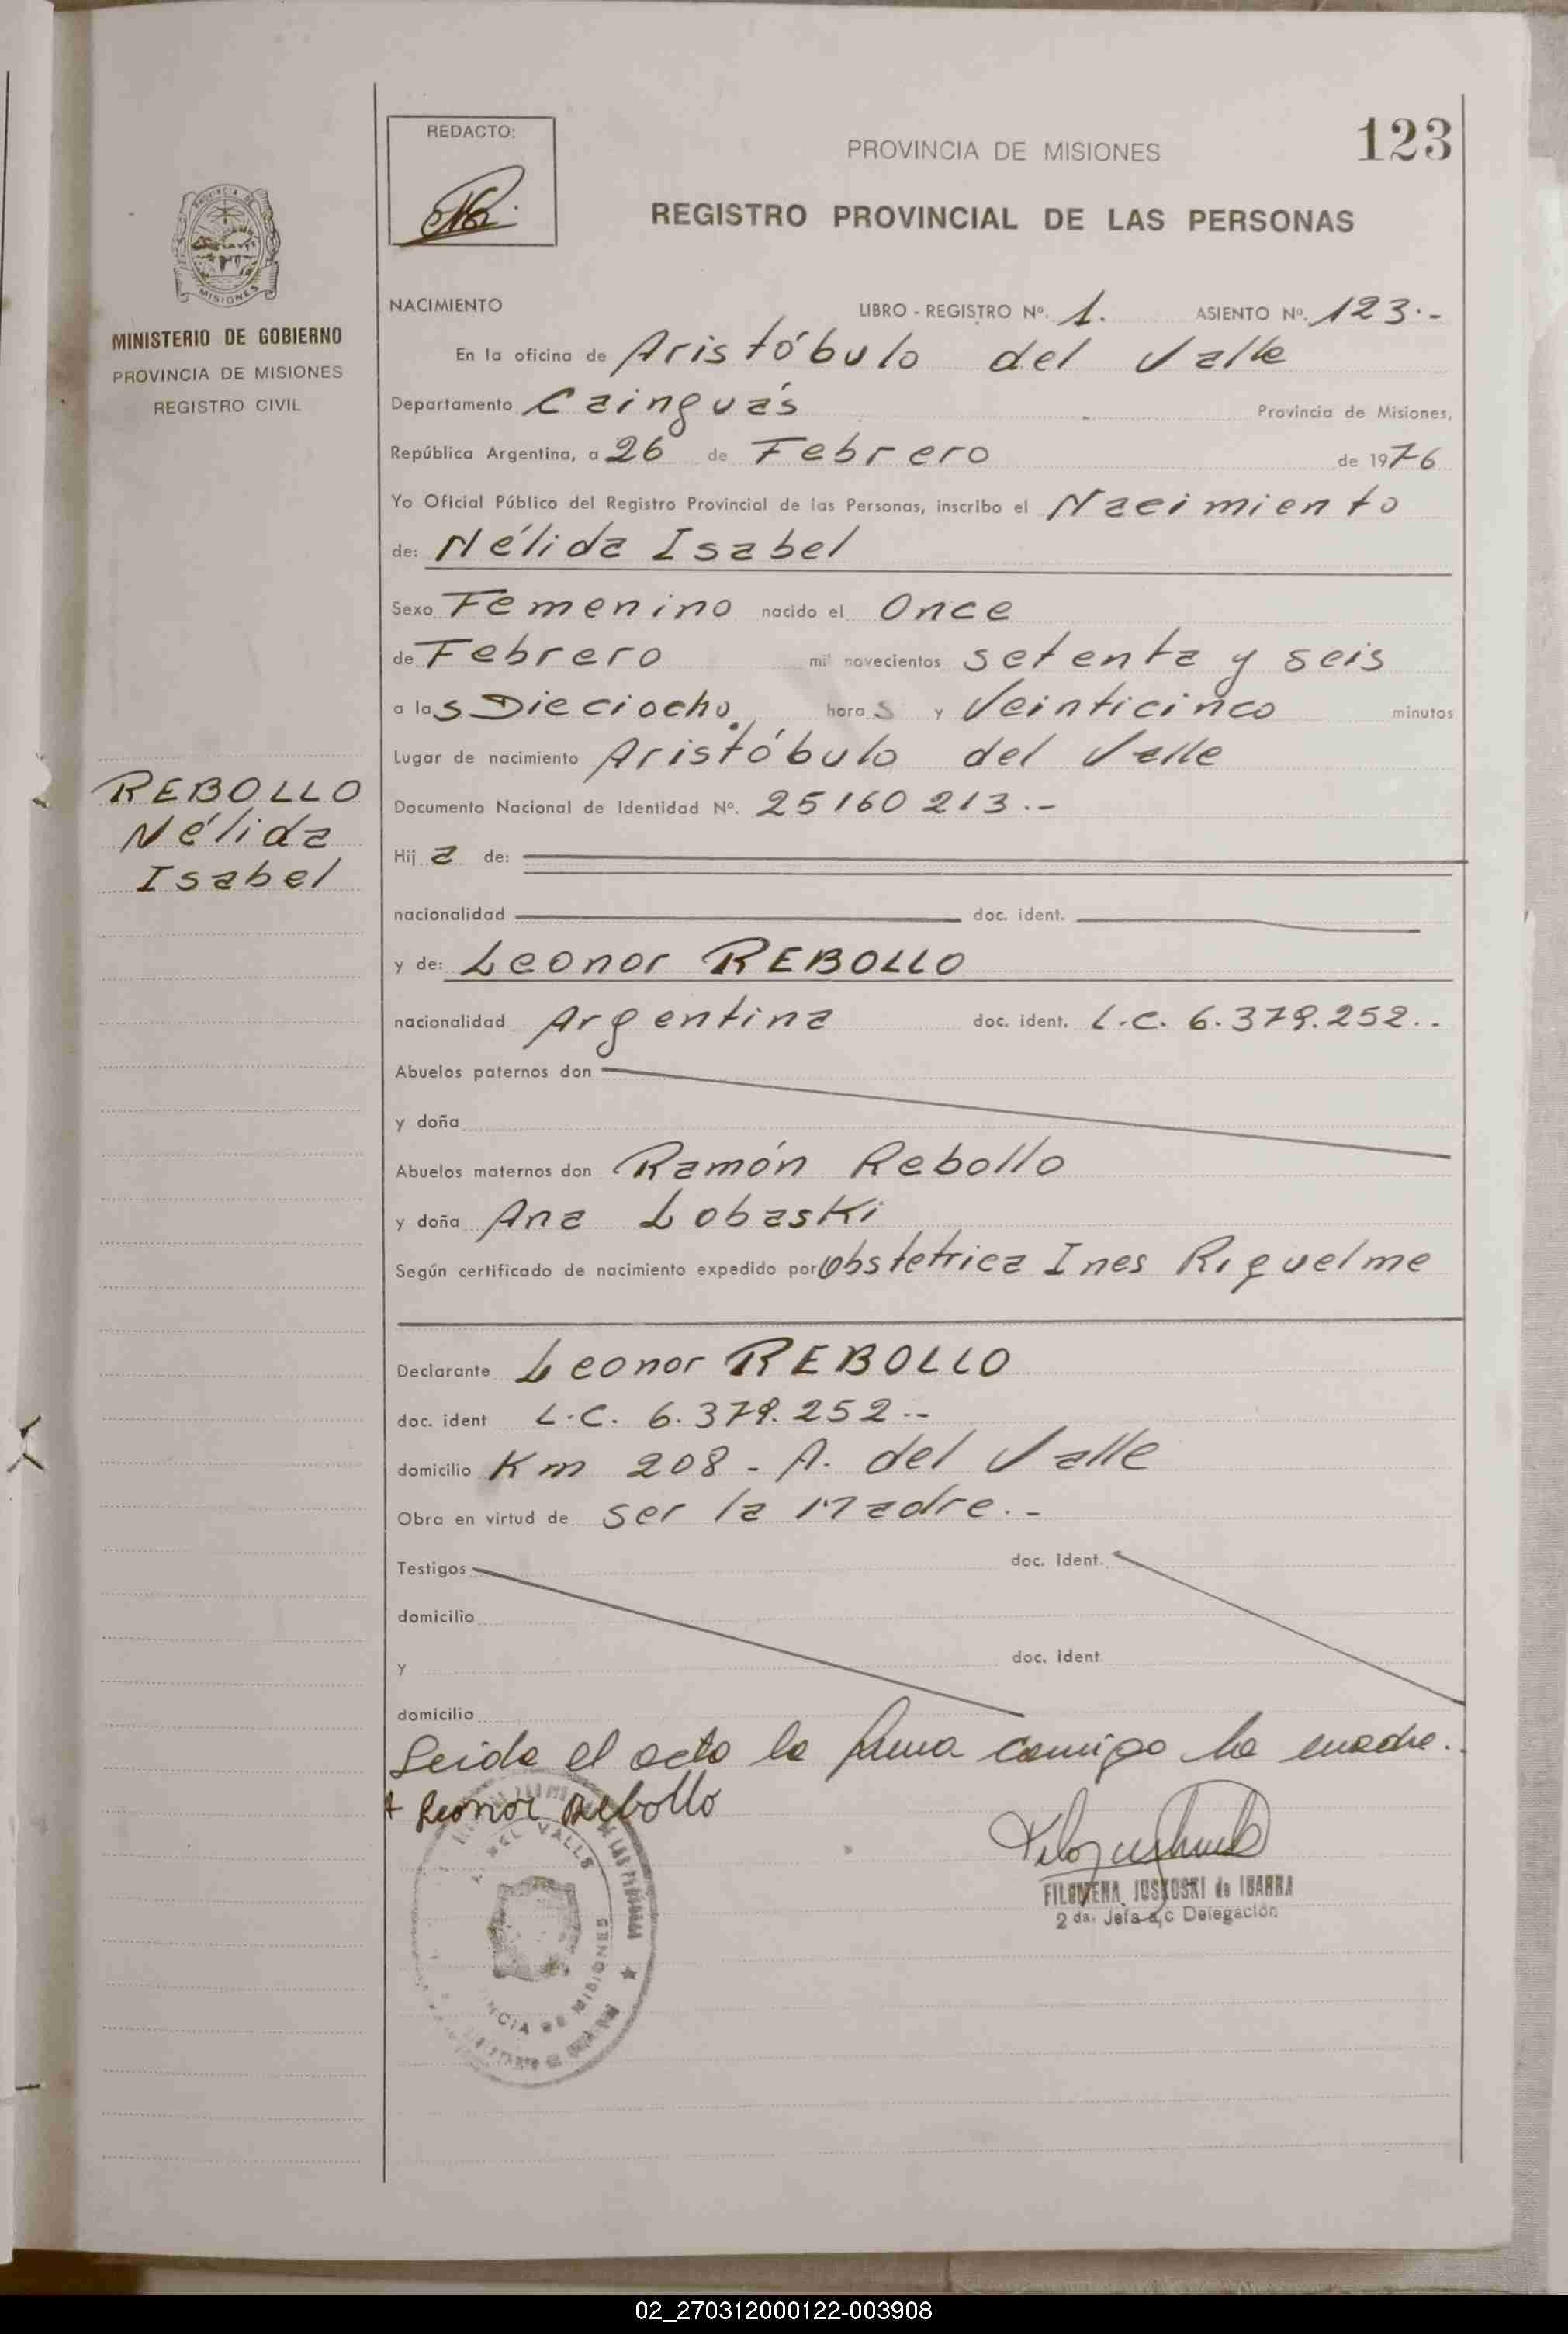 REDACTO:
PROVINCIA DE MISIONES
123
REGISTRO PROVINCIAL DE LAS PERSONAS
PROVINCIA DE
MISIONES
MINISTERIO DE GOBIERNO
PROVINCIA DE MISIONES
REGISTRO CIVIL
REBOLLO
Nélida
Isabel
NACIMIENTO LIBRO - REGISTRO Nº. 1. ASIENTO Nº. 123.-
En la oficina de Aristóbulo del Valle
Departamento Cainguás Provincia de Misiones,
República Argentina, a 26 de Febrero de 1976
Yo Oficial Público del Registro Provincial de las Personas, inscribo el Nacimiento
de: Nélida Isabel
Sexo Femenino nacido el Once
de Febrero mil novecientos setenta y seis
a las Dieciocho horas y Veinticinco minutos
Lugar de nacimiento Aristóbulo del Valle
Documento Nacional de Identidad Nº. 25160213.-
Hija de:
nacionalidad doc. ident.
y de: Leonor REBOLLO
nacionalidad Argentina doc. ident. L.C. 6.379.252..
Abuelos paternos don
y doña
Abuelos maternos don Ramón Rebollo
y doña Ana Lobaski
Según certificado de nacimiento expedido por Obstetrica Ines Riquelme
Declarante Leonor REBOLLO
doc. ident L.C. 6.379.252.-
domicilio Km 208 - A. del Valle
Obra en virtud de ser la Madre.-
Testigos doc. ident.
domicilio
y doc. ident
domicilio
Leida el acta la firma conmigo la madre.
+ Leonor Rebollo
FILOMENA JUSKOSKI de IBARRA
2 da. Jefa a/c Delegación
DEL VALLE
DE LAS PERSONAS
CIA DE MISIONES
02_270312000122-003908